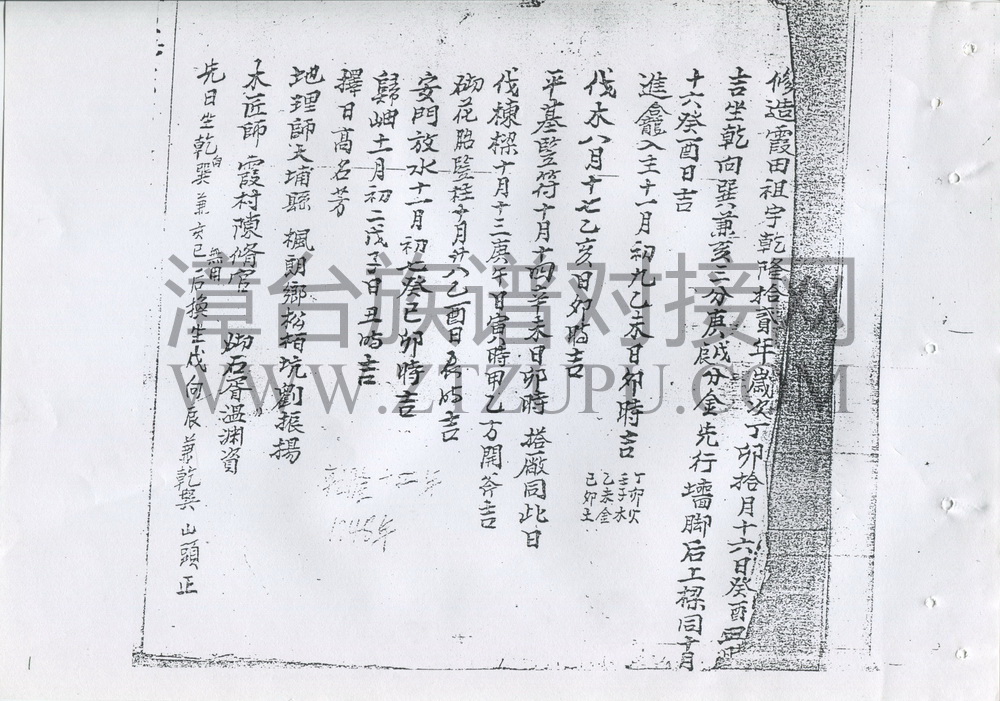 修造霞田祖宇乾隆拾貳年歲次丁卯拾月十六日癸酉
吉坐乾向巽兼亥三分庚戌庚辰分金先行墻脚后上樑同十月
十六癸酉日吉
進龕入主十一月初九乙未日卯時吉
丁卯火
壬子木
乙未金
己卯土
伐木八月十七乙亥日卯時吉
平基竪符十月十四辛未日卯時 搭廠同此日
伐棟樑十月十三庚午日寅時甲乙方開斧吉
砌花胎竪柱十月廿八乙酉日辰時吉
安門放水十一月初七癸巳卯時吉
歸岫十二月初二戊子日丑時吉
擇日高名芳
地理師大埔縣 楓朗鄉松栢坑劉振揚
木匠師 霞村陳脩官 砌石胥溫渊資
先日坐乾向巽兼亥巳無用后換坐戌向辰兼乾巽山頭正
乾隆十二年
漳台族谱对接网
WWW.ZTZUPU.COM